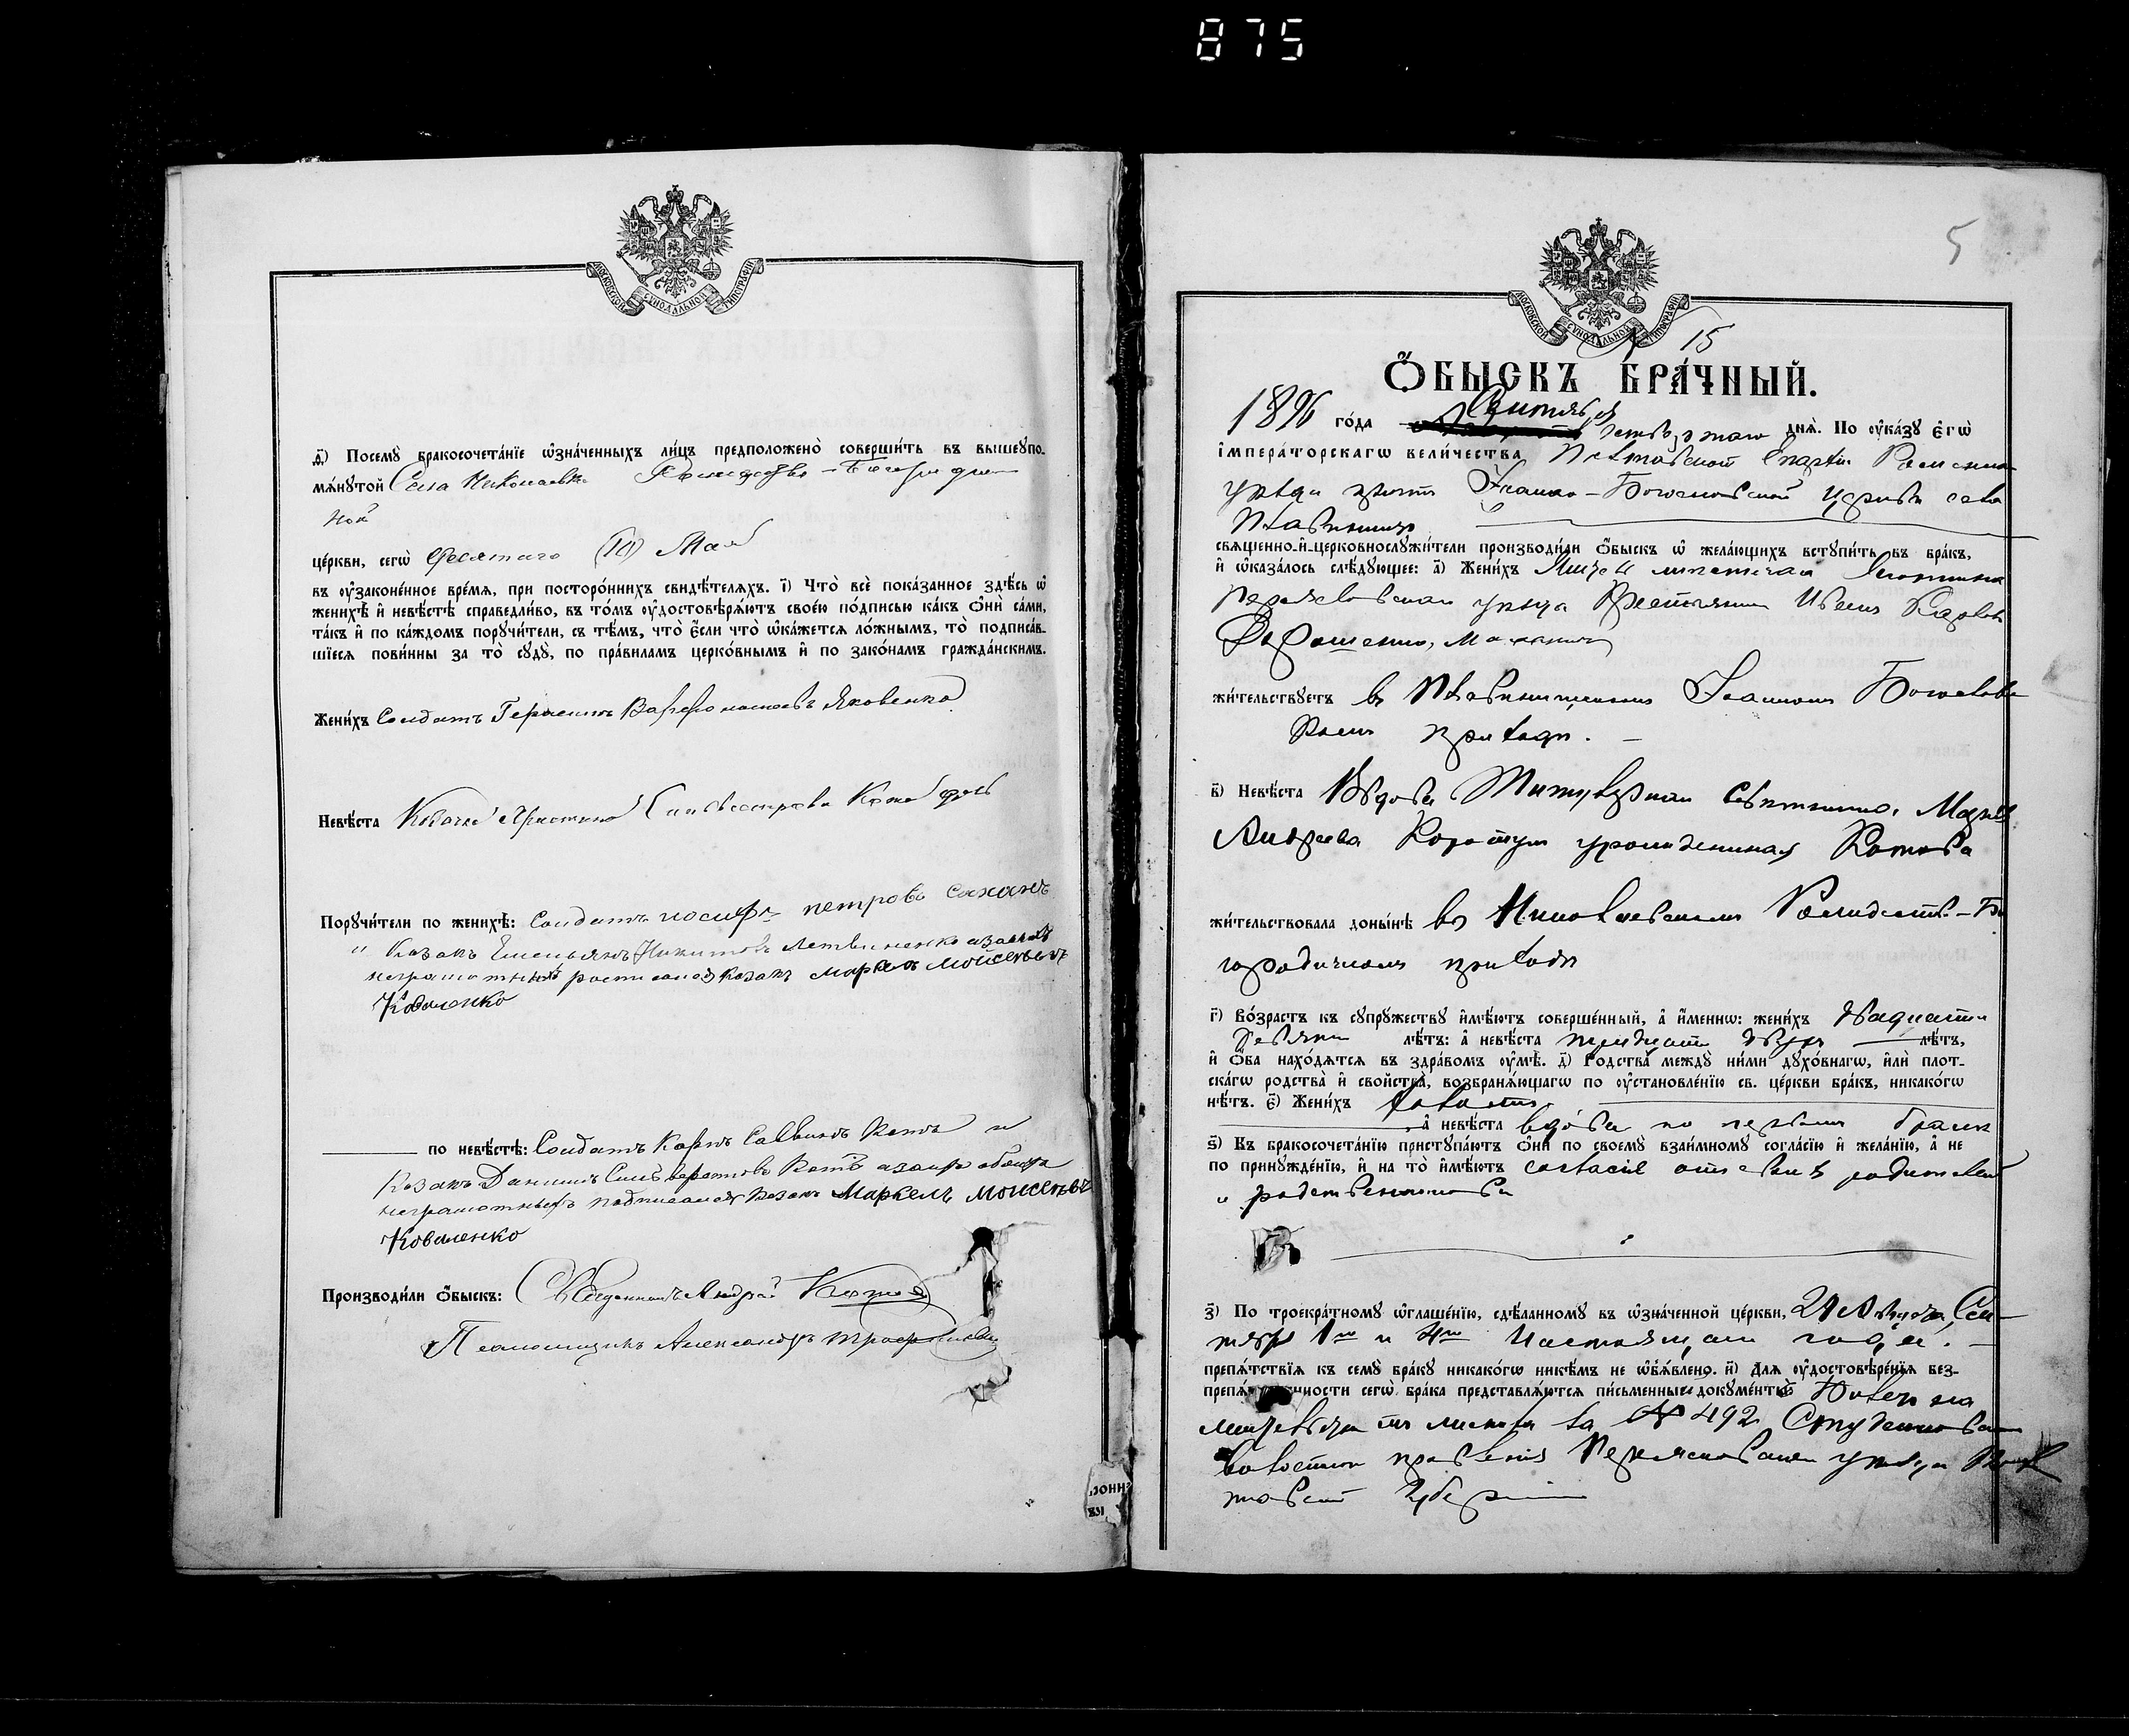 875
МОСКОВСКОЙ СУНОДАЛЬНОЙ ТИПОГРАФІИ
ѳ҃) Посемꙋ̀ бракосочета́нїе ѡ҆зна́ченныхъ ли́цъ предположено̀ соверши́ть въ вышеꙋпо-
мѧ́нꙋтой Села Николаевки Рождество-Богородич
ной
це́ркви, сегѡ̀ десятаго (10) Мая
въ ᲂу҆зако́ненное вре́мѧ, при посторо́ннихъ свидѣ́телѧхъ. і҃) Что̀ всѐ пока́занное здѣ́сь ѡ҆
женихѣ̀ и҆ невѣ́стѣ справедли́во, въ то́мъ ᲂу҆достовѣрѧ́ютъ свое́ю по́дписью ка́къ ѻ҆нѝ са́ми,
та́къ и҆ по ка́ждомъ порꙋчи́тели, съ тѣ́мъ, что̀ є҆́сли что̀ ѡ҆ка́жетсѧ ло́жнымъ, то̀ подписа́в-
шїесѧ пови́нны за то̀ сꙋдꙋ̀, по пра́виламъ церко́внымъ и҆ по зако́намъ гражда́нскимъ.
Жени́хъ Солдатъ Герасимъ Варфоломеевъ Яковенко
Невѣ́ста Козачка Христина Сильвестрова
Порꙋчи́тели по женихѣ̀: Солдатъ иосифъ петровъ
" Казакъ Емельянъ Никитовъ Летвиненко а за нихъ
неграмотныхъ росписался казакъ Маркелъ Мойсеевъ
Коваленко
по невѣ́стѣ: Солдатъ Карпъ Саввинъ Котъ и
Казакъ Даниилъ Сильверстовъ Котъ а за ихъ обоихъ
неграмотныхъ подписался казакъ Маркелъ Моисеевъ
Коваленко
Производи́ли ѻ҆́быскъ: Священникъ Андрей
Псаломщикъ Александръ
5
МОСКОВСКОЙ СУНОДАЛЬНОЙ ТИПОГРАФІИ
15
Ѻ҆́БЫСКЪ БРА́ЧНЫЙ.
1896 го́да Сентября четвертаго днѧ̀. По ᲂу҆ка́зꙋ є҆гѡ̀
і҆мпера́торскагѡ вели́чества, Полтавской Епархіи Роменскаго
уѣзда причтъ Іоанно-Богословской церкви села
Плавинищъ
свѧще́нно-и҆-церковнослꙋжи́тели производи́ли ѻ҆́быскъ ѡ҆ жела́ющихъ встꙋпи́ть въ бра́къ,
и҆ ѡ҆каза́лось слѣ́дꙋющее: а҃) Жени́хъ
Переяславскаго уѣзда Крестьянинъ Иванъ Карповъ
Дорошенко,
жи́тельствꙋетъ въ Плавинищскомъ Іоанно Богослов
скомъ приходѣ. —
в҃) Невѣ́ста Вдова Марія
Андреева урожденная Котова
жи́тельствовала доны́нѣ въ Николаевскомъ Рождество-Бо
городичномъ приходѣ
г҃) Во́зрастъ къ сꙋпрꙋ́жествꙋ и҆мѣ́ютъ соверше́нный, а҆ и҆́меннѡ: жени́хъ двадцати
девяти лѣ́тъ: а҆ невѣ́ста тридцати двухъ лѣ́тъ,
и҆ ѻ҆́ба нахо́дѧтсѧ въ здра́вомъ ᲂу҆мѣ̀. д҃) Родства̀ междꙋ̀ ни́ми дꙋхо́внагѡ, и҆лѝ плот-
ска́гѡ родства̀ и҆ свойства̀, возбранѧ́ющагѡ по ᲂу҆становле́нїю св. це́ркви бра́къ, никако́гѡ
нѣ́тъ. є҃) Жени́хъ холостъ
а҆ невѣ́ста вдова по первомъ бракѣ
ѕ҃) Къ бракосочета́нїю пристꙋпа́ютъ ѻ҆нѝ по своемꙋ̀ взаи́мномꙋ согла́сїю и҆ жела́нїю, а҆ не
по принꙋжде́нїю, и҆ на то̀ и҆мѣ́ютъ согласіе отъ своихъ родителей
и родственниковъ
з҃) По троекра́тномꙋ ѡ҆глаше́нїю, сдѣ́ланномꙋ въ ѡ҆зна́ченной це́ркви, Августа, Сен-
тября 1го и настоящаго года. —
препѧ́тствїѧ къ семꙋ̀ бра́кꙋ никако́гѡ никѣ́мъ не ѡ҆б̾ѧ́влено. и҃) Длѧ ᲂу҆достовѣре́нїѧ без-
препѧ́тственности сегѡ̀ бра́ка представлѧ́ютсѧ пи́сьменные докꙋме́нты Билетъ на
за № 492 Студениковскаго
волостнаго правленія Переяславскаго уѣзда Пол
тавской Губерніи